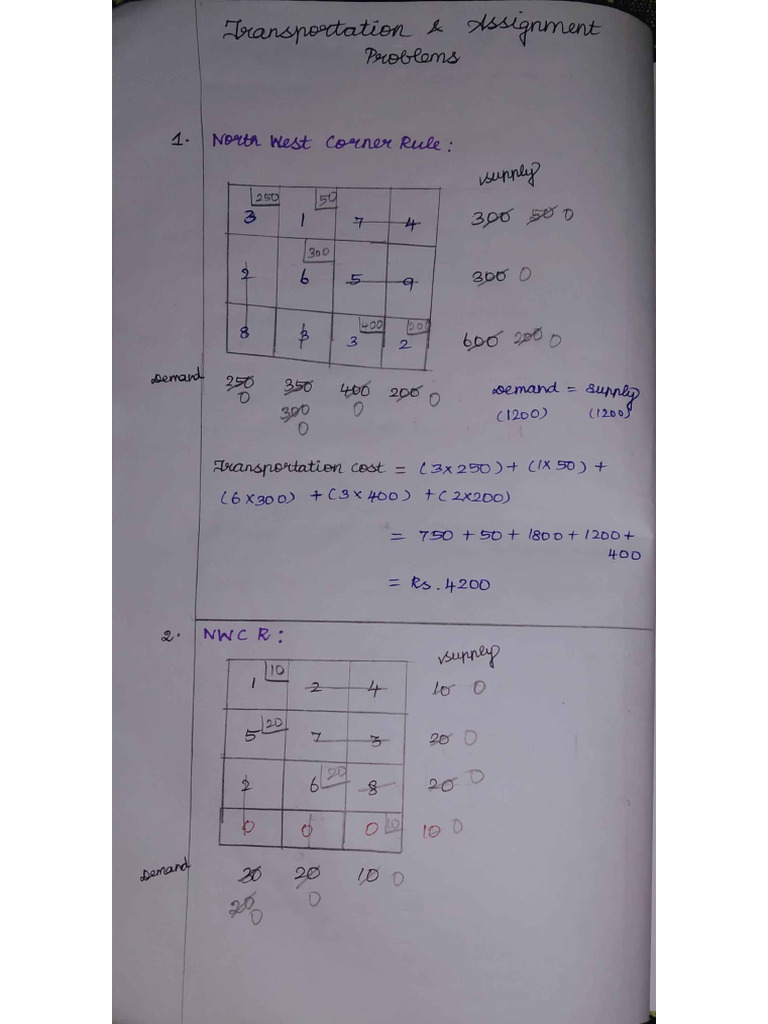 Transportation & Assignment
Problems
1. North West Corner Rule:
Supply
250 50
3 1 7 4 300 50 0
300
2 6 5 9 300 0
400 200
8 3 3 2 600 200 0
Demand 250 350 400 200 0
0 300 0
0
Demand = Supply
(1200) (1200)
Transportation cost = (3x250) + (1x50) +
(6x300) + (3x400) + (2x200)
= 750 + 50 + 1800 + 1200 +
400
= Rs. 4200
2. NWCR:
Supply
10
1 2 4 10 0
20
5 7 3 20 0
20
2 6 8 20 0
10
0 0 0 10 0
Demand 30 20 10 0
20 0
0